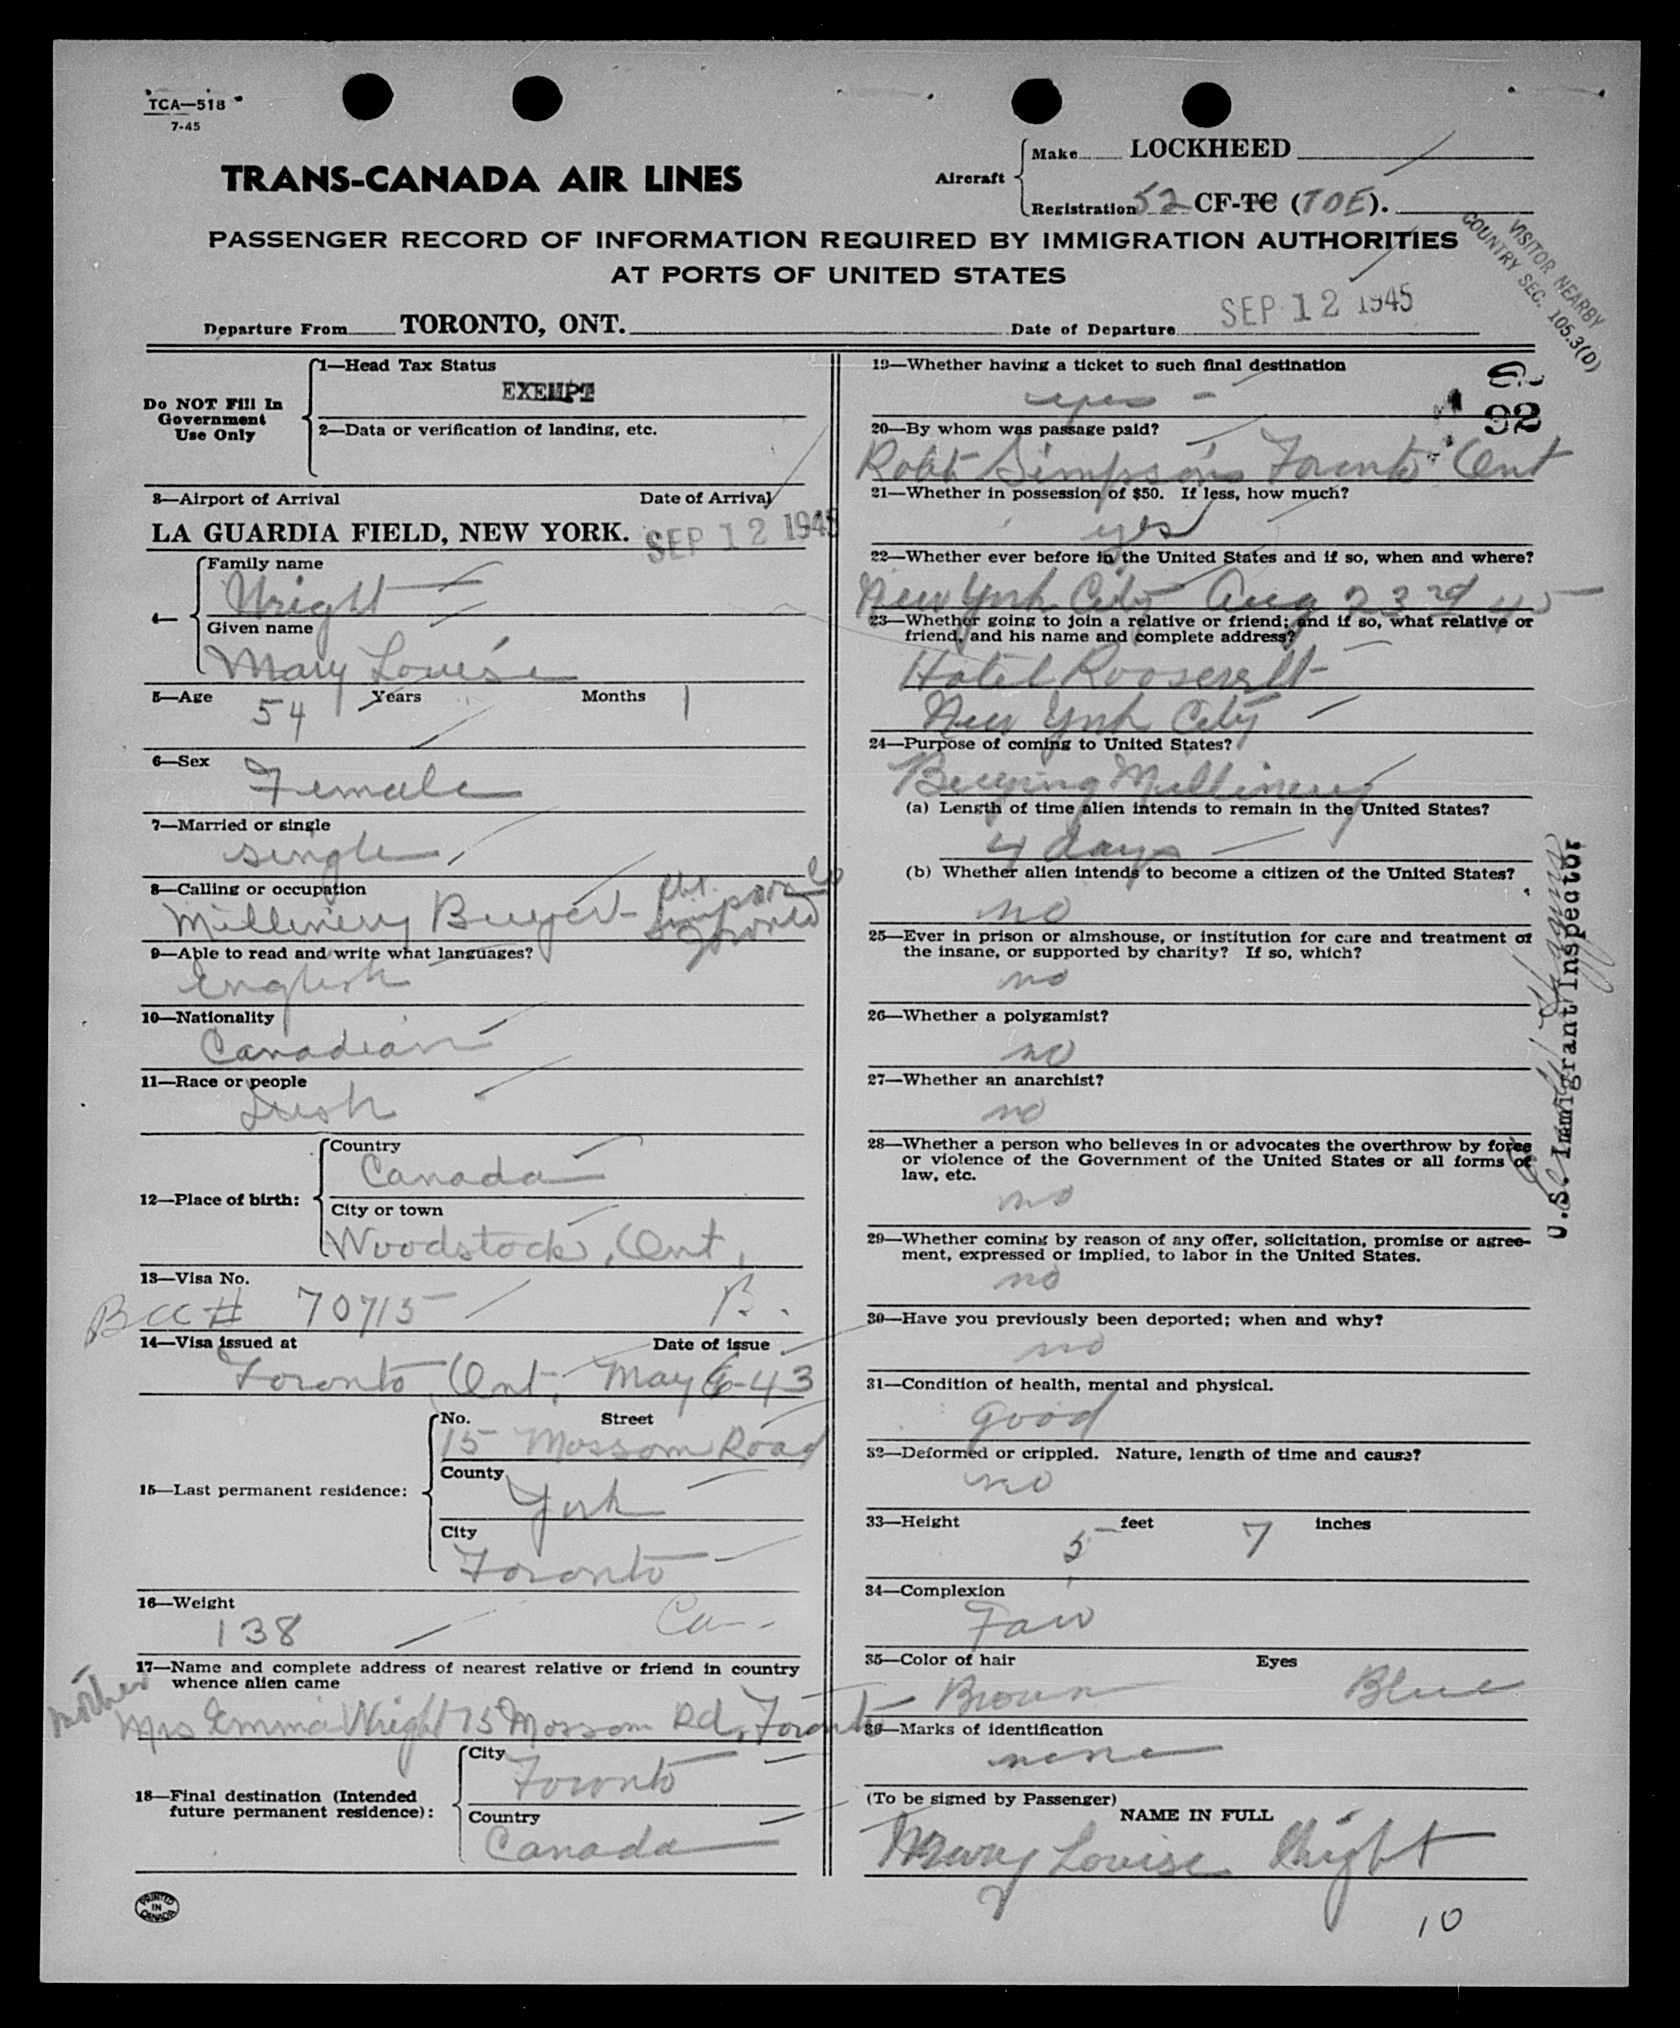 TCA—518
7-45
TRANS-CANADA AIR LINES
Aircraft
Make LOCKHEED
Registration 52 CF-TC (TOE).
PASSENGER RECORD OF INFORMATION REQUIRED BY IMMIGRATION AUTHORITIES
AT PORTS OF UNITED STATES
VISITOR NEARBY
COUNTRY SEC. 105.3(D)
Departure From TORONTO, ONT. Date of Departure SEP 12 1945
Do NOT Fill In
Government
Use Only
1—Head Tax Status
EXEMPT
2—Data or verification of landing, etc.
3—Airport of Arrival Date of Arrival
LA GUARDIA FIELD, NEW YORK. SEP 12 1945
4—
Family name
Wright
Given name
Mary Louise
5—Age 54 Years Months 1
6—Sex
Female
7—Married or single
single
8—Calling or occupation
Millinery Buyer - Rbt. Simpson Co
Toronto
9—Able to read and write what languages?
English
10—Nationality
Canadian
11—Race or people
Irish
12—Place of birth:
Country
Canada
City or town
Woodstock, Ont.
13—Visa No.
BCC# 70715 B.
14—Visa issued at Date of issue
Toronto, Ont. May 6-43
15—Last permanent residence:
No. Street
15 Mossom Road
County
York
City
Toronto
16—Weight
138 Ca--
17—Name and complete address of nearest relative or friend in country
whence alien came
mother
Mrs Emma Wright 15 Mossom Rd, Toronto
18—Final destination (Intended
future permanent residence):
City
Toronto
Country
Canada
PRINTED
IN
CANADA
19—Whether having a ticket to such final destination
yes -
92
20—By whom was passage paid?
Robt Simpsons Toronto Ont
21—Whether in possession of $50. If less, how much?
yes
22—Whether ever before in the United States and if so, when and where?
New York City Aug 23rd 45
23—Whether going to join a relative or friend; and if so, what relative or
friend, and his name and complete address?
Hotel Roosevelt
New York City
24—Purpose of coming to United States?
Buying Millinery
(a) Length of time alien intends to remain in the United States?
4 days
(b) Whether alien intends to become a citizen of the United States?
no
25—Ever in prison or almshouse, or institution for care and treatment of
the insane, or supported by charity? If so, which?
no
26—Whether a polygamist?
no
27—Whether an anarchist?
no
28—Whether a person who believes in or advocates the overthrow by force
or violence of the Government of the United States or all forms of
law, etc.
no
29—Whether coming by reason of any offer, solicitation, promise or agree-
ment, expressed or implied, to labor in the United States.
no
30—Have you previously been deported; when and why?
no
31—Condition of health, mental and physical.
good
32—Deformed or crippled. Nature, length of time and cause?
no
33—Height 5 feet 7 inches
34—Complexion
Fair
35—Color of hair Eyes
Brown Blue
36—Marks of identification
none
(To be signed by Passenger)
NAME IN FULL
Mary Louise Wright
10
U.S. Immigrant Inspector